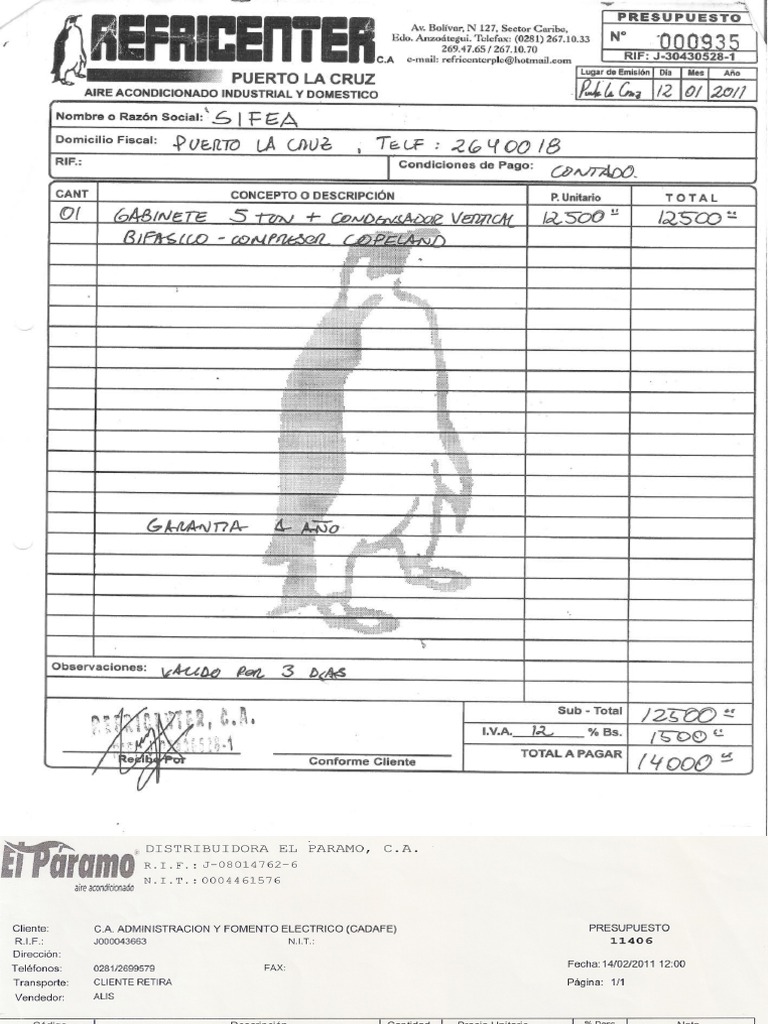 REFRICENTER C.A
PUERTO LA CRUZ
AIRE ACONDICIONADO INDUSTRIAL Y DOMESTICO
Av. Bolívar, N 127, Sector Caribe,
Edo. Anzoátegui. Telefax: (0281) 267.10.33
269.47.65 / 267.10.70
e-mail: refricenterplc@hotmail.com
PRESUPUESTO
N° 000935
RIF: J-30430528-1
Lugar de Emisión Día Mes Año
Puerto La Cruz 12 01 2011
Nombre o Razón Social: SIFEA
Domicilio Fiscal: PUERTO LA CRUZ, TELF: 2640018
RIF.: Condiciones de Pago: CONTADO.
CANT CONCEPTO O DESCRIPCIÓN P. Unitario TOTAL
01 GABINETE 5 TON + CONDENSADOR VERTICAL 12500 12500
BIFASICO - COMPRESOR COPELAND
GARANTIA 1 AÑO
Observaciones: VALIDO POR 3 DIAS
REFRICENTER, C.A.
Recibe Por
Conforme Cliente
Sub - Total 12500
I.V.A. 12 % Bs. 1500
TOTAL A PAGAR 14000
El Páramo
aire acondicionado
DISTRIBUIDORA EL PARAMO, C.A.
R.I.F.: J-08014762-6
N.I.T.: 0004461576
Cliente: C.A. ADMINISTRACION Y FOMENTO ELECTRICO (CADAFE)
R.I.F.: J000043663 N.I.T.:
Dirección:
Teléfonos: 0281/2699579 FAX:
Transporte: CLIENTE RETIRA
Vendedor: ALIS
PRESUPUESTO
11406
Fecha: 14/02/2011 12:00
Página: 1/1
Código Descripción Cantidad Precio Unitario % Desc. Neto